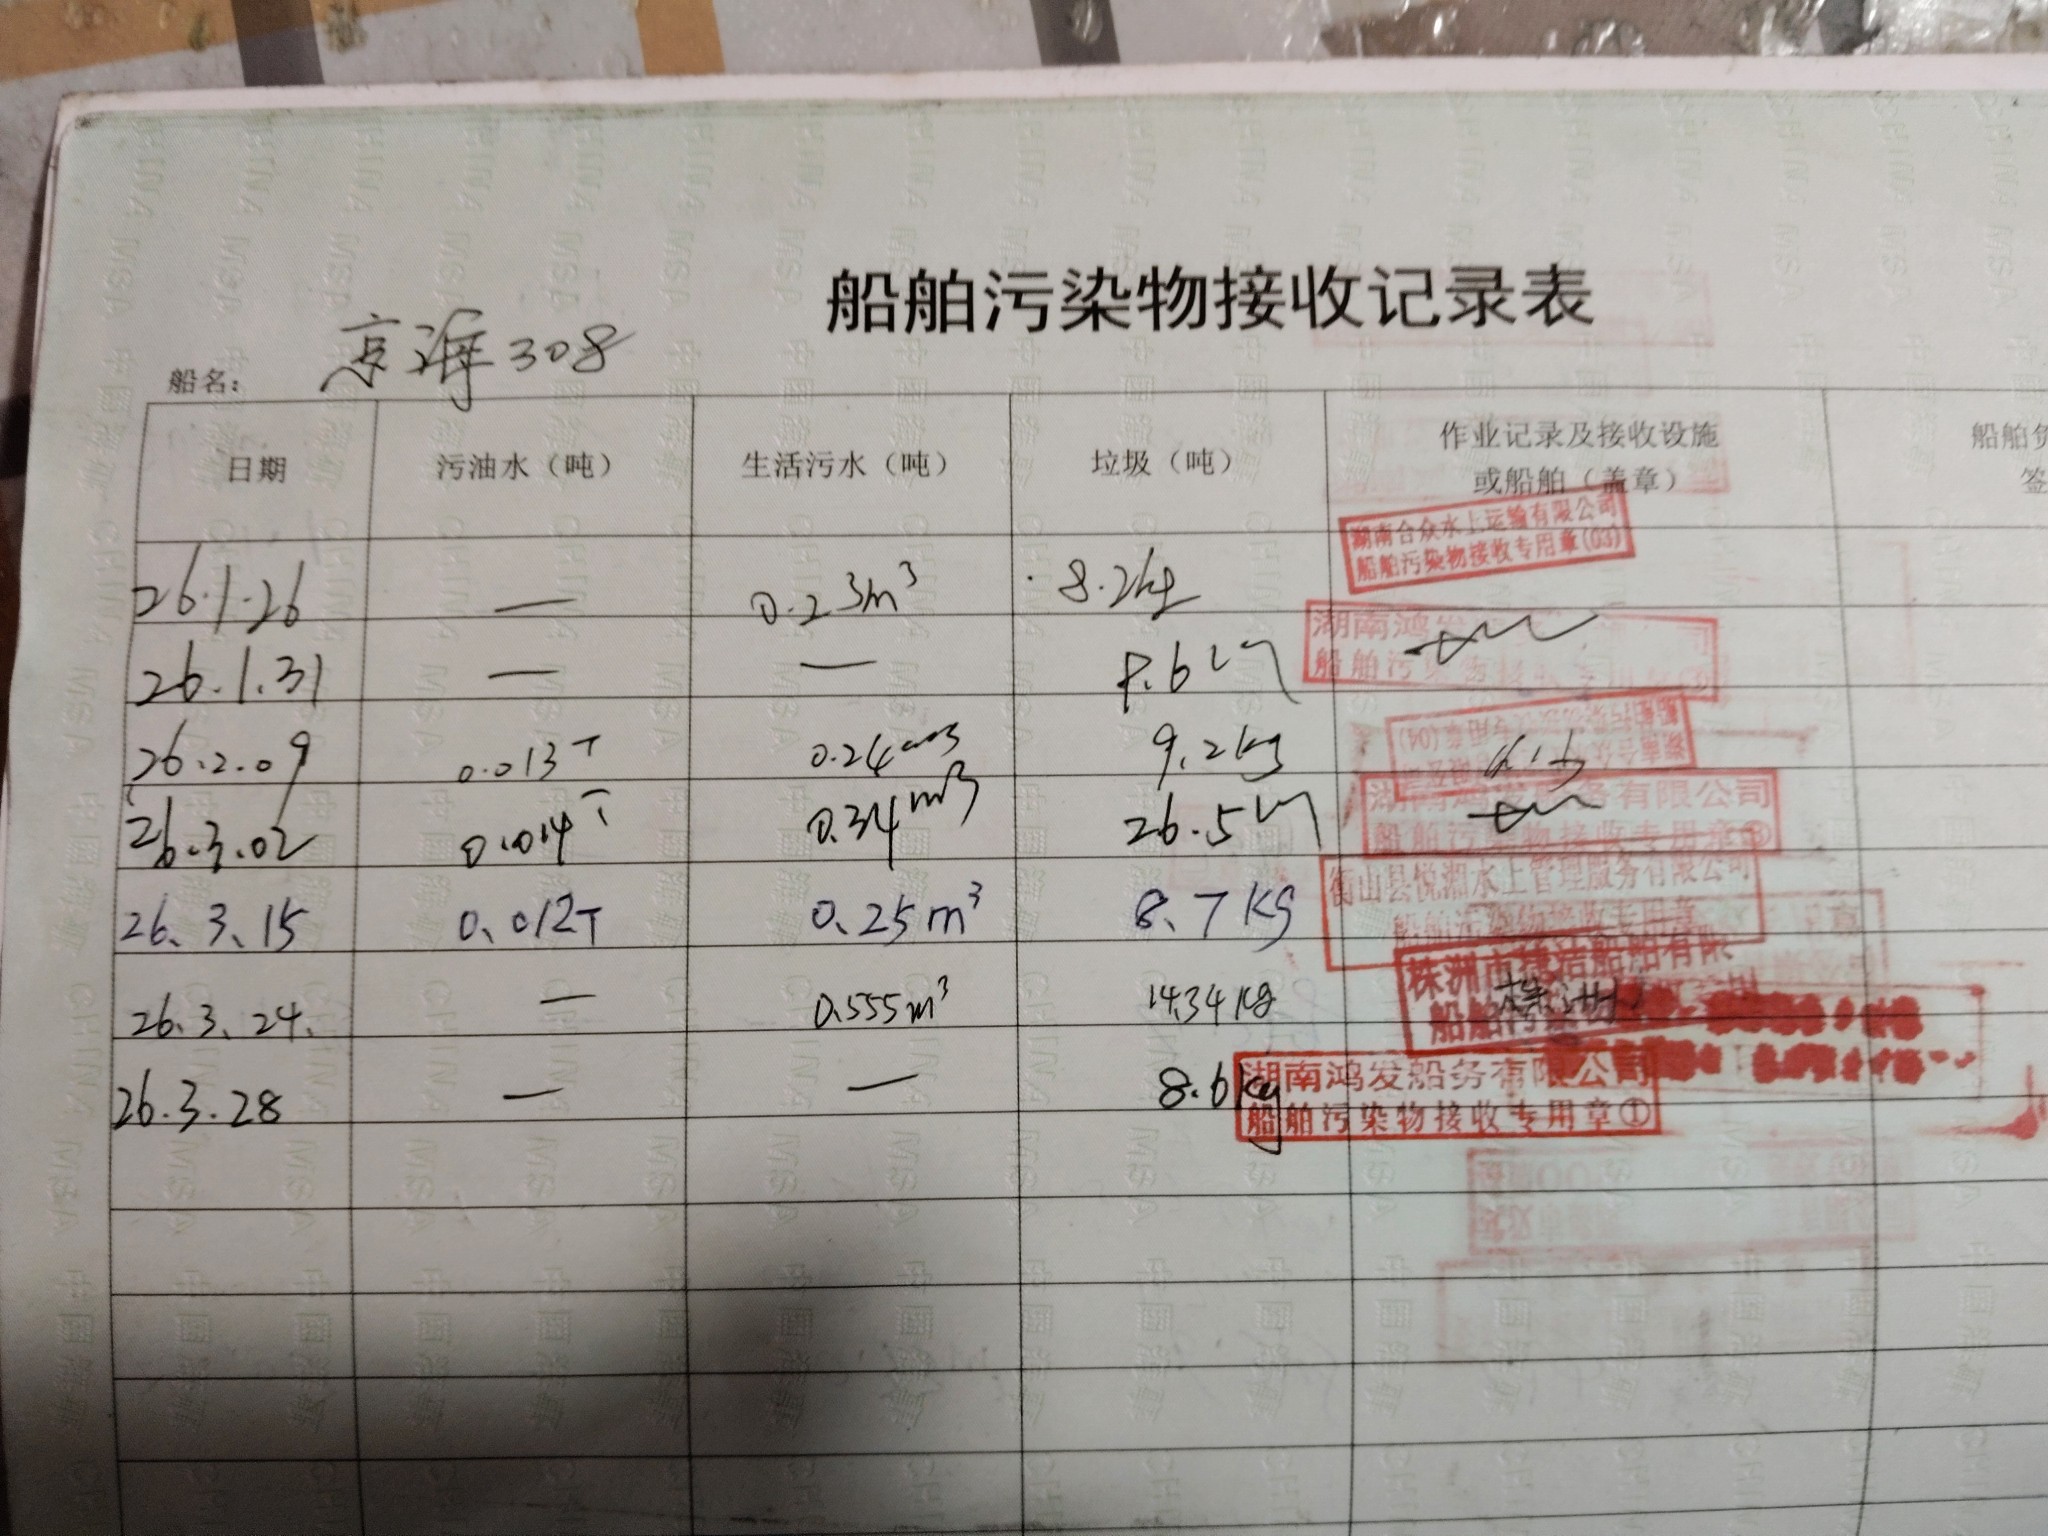 船舶污染物接收记录表
船名: 京海308
日期 污油水（吨） 生活污水（吨） 垃圾（吨） 作业记录及接收设施或船舶（盖章） 船舶
签
湖南合众水上运输有限公司
船舶污染物接收专用章(03)
26.1.26 — 0.23m³ 8.2kg
湖南鸿发
船舶污
26.1.31 — — 8.6kg
26.2.09 0.013T 0.24m3 9.2kg
26.3.02 0.014T 0.34m3 26.5kg
务有限公司
船舶污染物接收专用章
26.3.15 0.012T 0.25m³ 8.7KG
衡山县悦湘水上管理服务有限公司
船舶污染物接收专用章
26.3.24. — 0.555m³ 14.34Kg
株洲市捷洁船舶有限
船舶污
株洲
26.3.28 — — 8.6kg
湖南鸿发船务有限公司
船舶污染物接收专用章①
中国海事 CHINA MSA